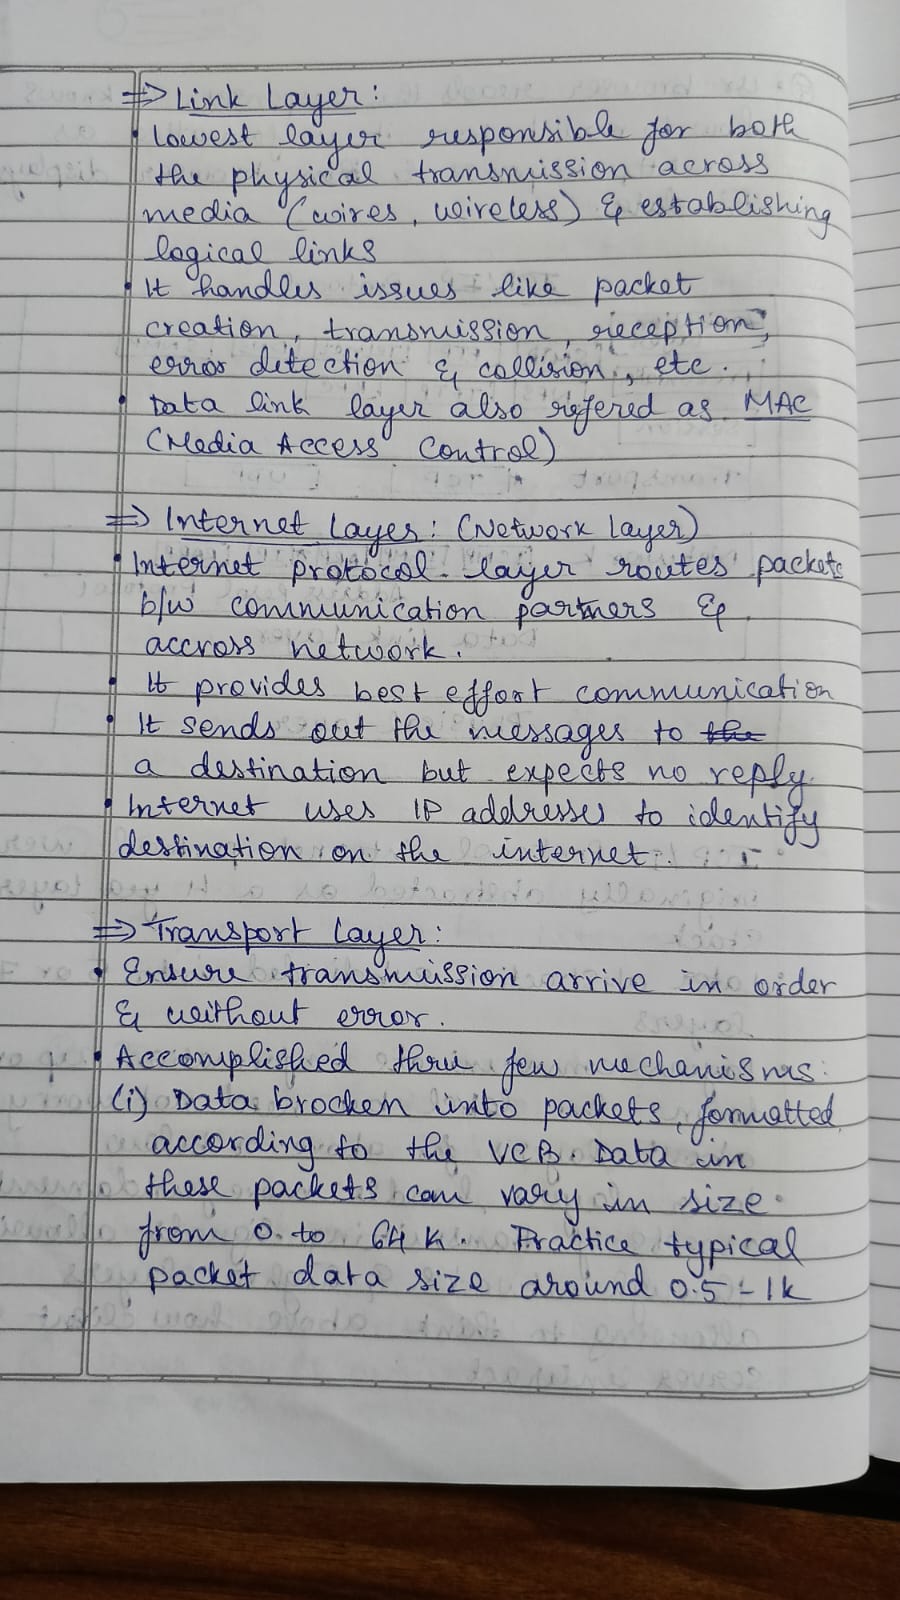 ⇒ Link Layer:
• Lowest layer responsible for both
the physical transmission across
media (wires, wireless) & establishing
logical links
• It handles issues like packet
creation, transmission, reception,
error detection & collision, etc.
• Data link layer also refered as MAC
(Media Access Control)
⇒ Internet Layer: (Network Layer)
• Internet protocol layer routes packets
b/w communication partners &
accross network.
• It provides best effort communication
• It sends out the messages to the
a destination but expects no reply.
• Internet uses IP addresses to identify
destination on the internet.
⇒ Transport Layer:
• Ensure transmission arrive in order
& without error.
• Accomplished thru few mechanisms:
(i) Data brocken into packets, formatted
according to the VCB. Data in
these packets can vary in size
from 0 to 64 K. Practice typical
packet data size around 0.5 - 1k